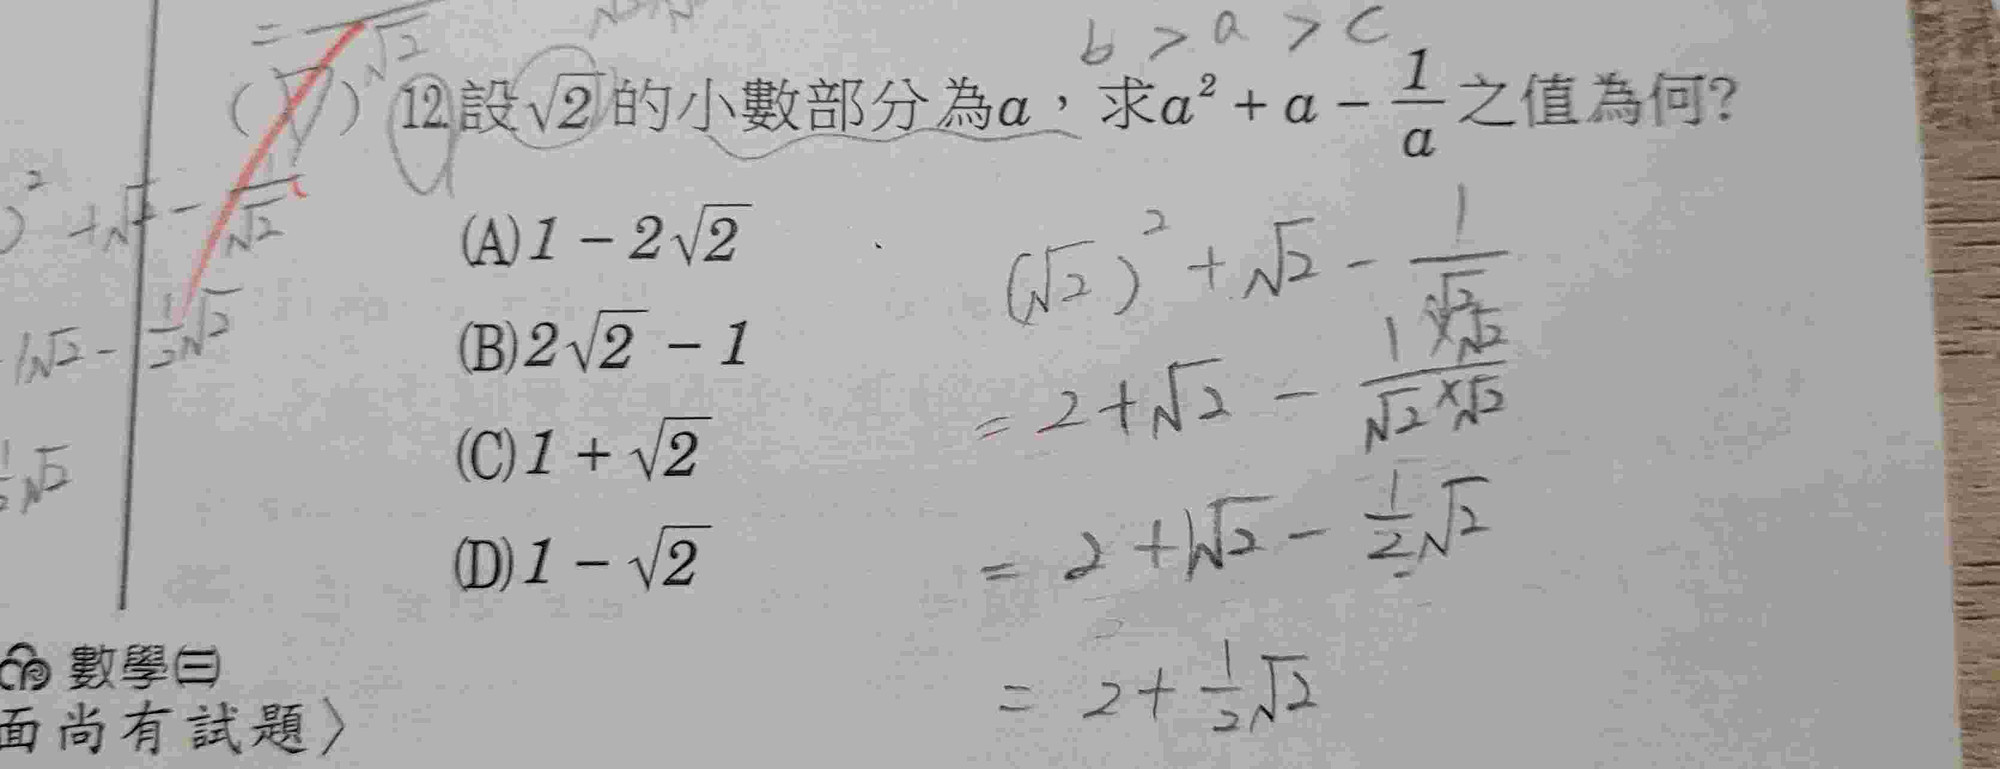 b > a > c
= √2
( ) 12.設√2的小數部分為a，求a² + a − 1/a 之值為何?
(A) 1 − 2√2
(B) 2√2 − 1
(C) 1 + √2
(D) 1 − √2
(√2)² + √2 − 1/√2
= 2 + √2 − 1×√2/√2×√2
= 2 + 1√2 − 1/2√2
= 2 + 1/2√2
)² + √2 − 1/√2
1√2 − 1/2√2
√2
數學㊂
面尚有試題〉